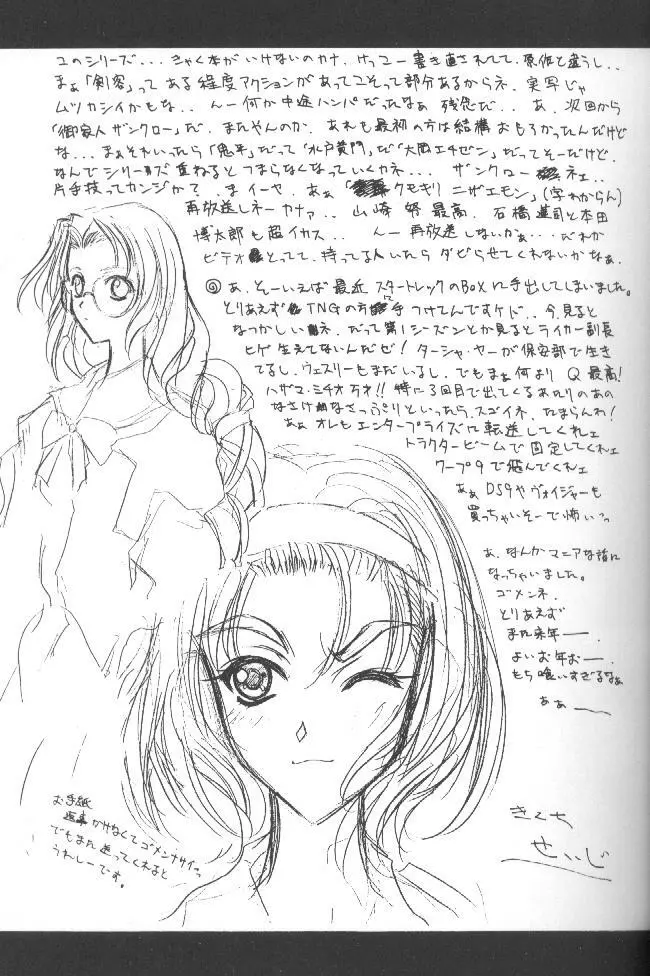 このシリーズ... きゃく本がいけないのカナ、けっこー書き直されてて、原作と違うし..
まぁ「剣客」って ある程度アクションがあってこそって部分あるからネ. 実写じゃ
ムツカシイかもな.. んー何か中途ハンパだったなぁ 残念だ.. あ、次回から
「御家人ザンクロー」だ. またやんのか、あれも最初の方は結構おもろかったんだけど
な... まぁそれいったら「鬼平」だって「水戸黄門」だ「大岡エチゼン」だってそーだけど.
なんでシリーズ重ねると つまらなくなっていくカネ... ザンクロー ネェ..
片手技ってカンジか?. ま イーヤ. あぁ「クモキリ ニザエモン」(字わからん)
再放送しネーカナァ.. 山崎努 最高. 石橋蓮司と本田
博太郎も超イカス.. んー 再放送しないかぁ... だれか
ビデオとってて、持ってる人いたら ダビらせてくれないかなぁ.
◎あ、そーいえば 最近 スタートレックのBOXに手出してしまいました。
とりあえず TNGの方に手つけてんですケド.. 今見ると
なつかしいネ. だって第1シーズンとか見るとライカー副長
ヒゲ生えてないんだぜ! ターシャ・ヤーが保安部で生き
てるし. ウェスリーもまだいるし. でもまぁ何より Q最高!
ハザマ・ミチオ万才!! 特に3回目で出てくるあたりのあの
なさけなさっぷりといったら. スゴイネ. たまらんわ!
あぁ オレもエンタープライズに転送してくれェ
トラクタービームで固定してくれェ
ワープ9で飛んでくれェ
あぁ DS9やヴォイジャーも
買っちゃいそーで怖いっ
あ. なんかマニアな話に
なっちゃいました。
ゴメンネ.
とりあえず
また来年ーー.
よいお年おーー.
もち喰いすぎるなぁ
あぁーー
お手紙
返事かけなくてゴメンナサイっ
でもまた送ってくれると
うれしーです。
きくち
せいじ